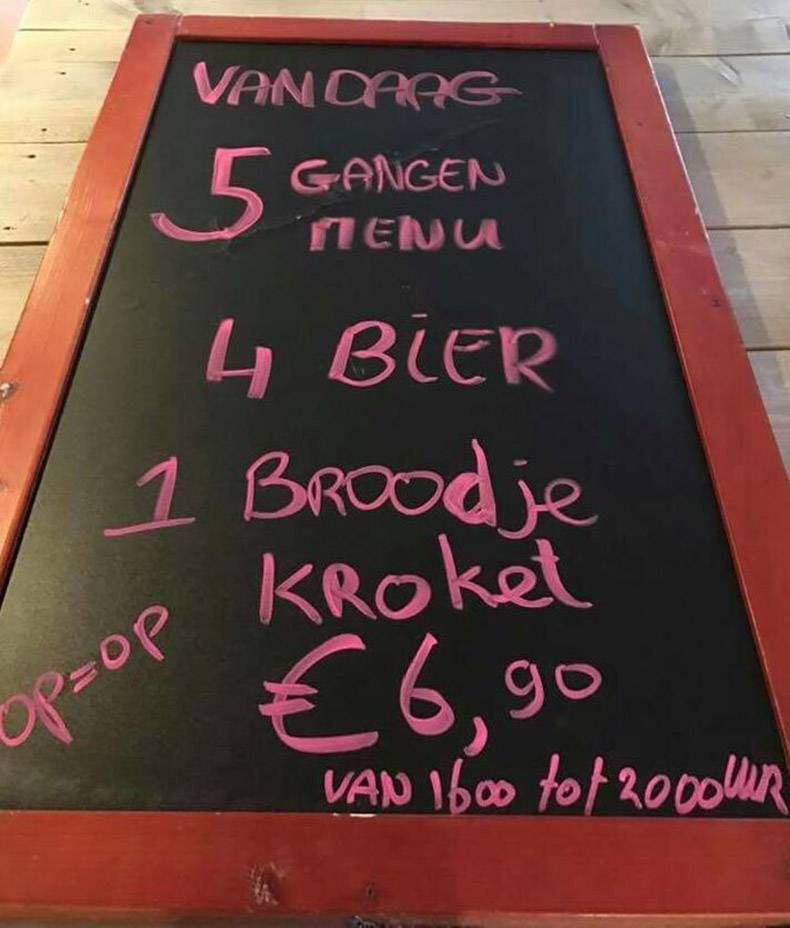 VANDAAG
5 GANGEN
MENU
4 BiER
1 BROOdje
KROket
OP=OP
€6,90
VAN 1600 tot 2000 UUR